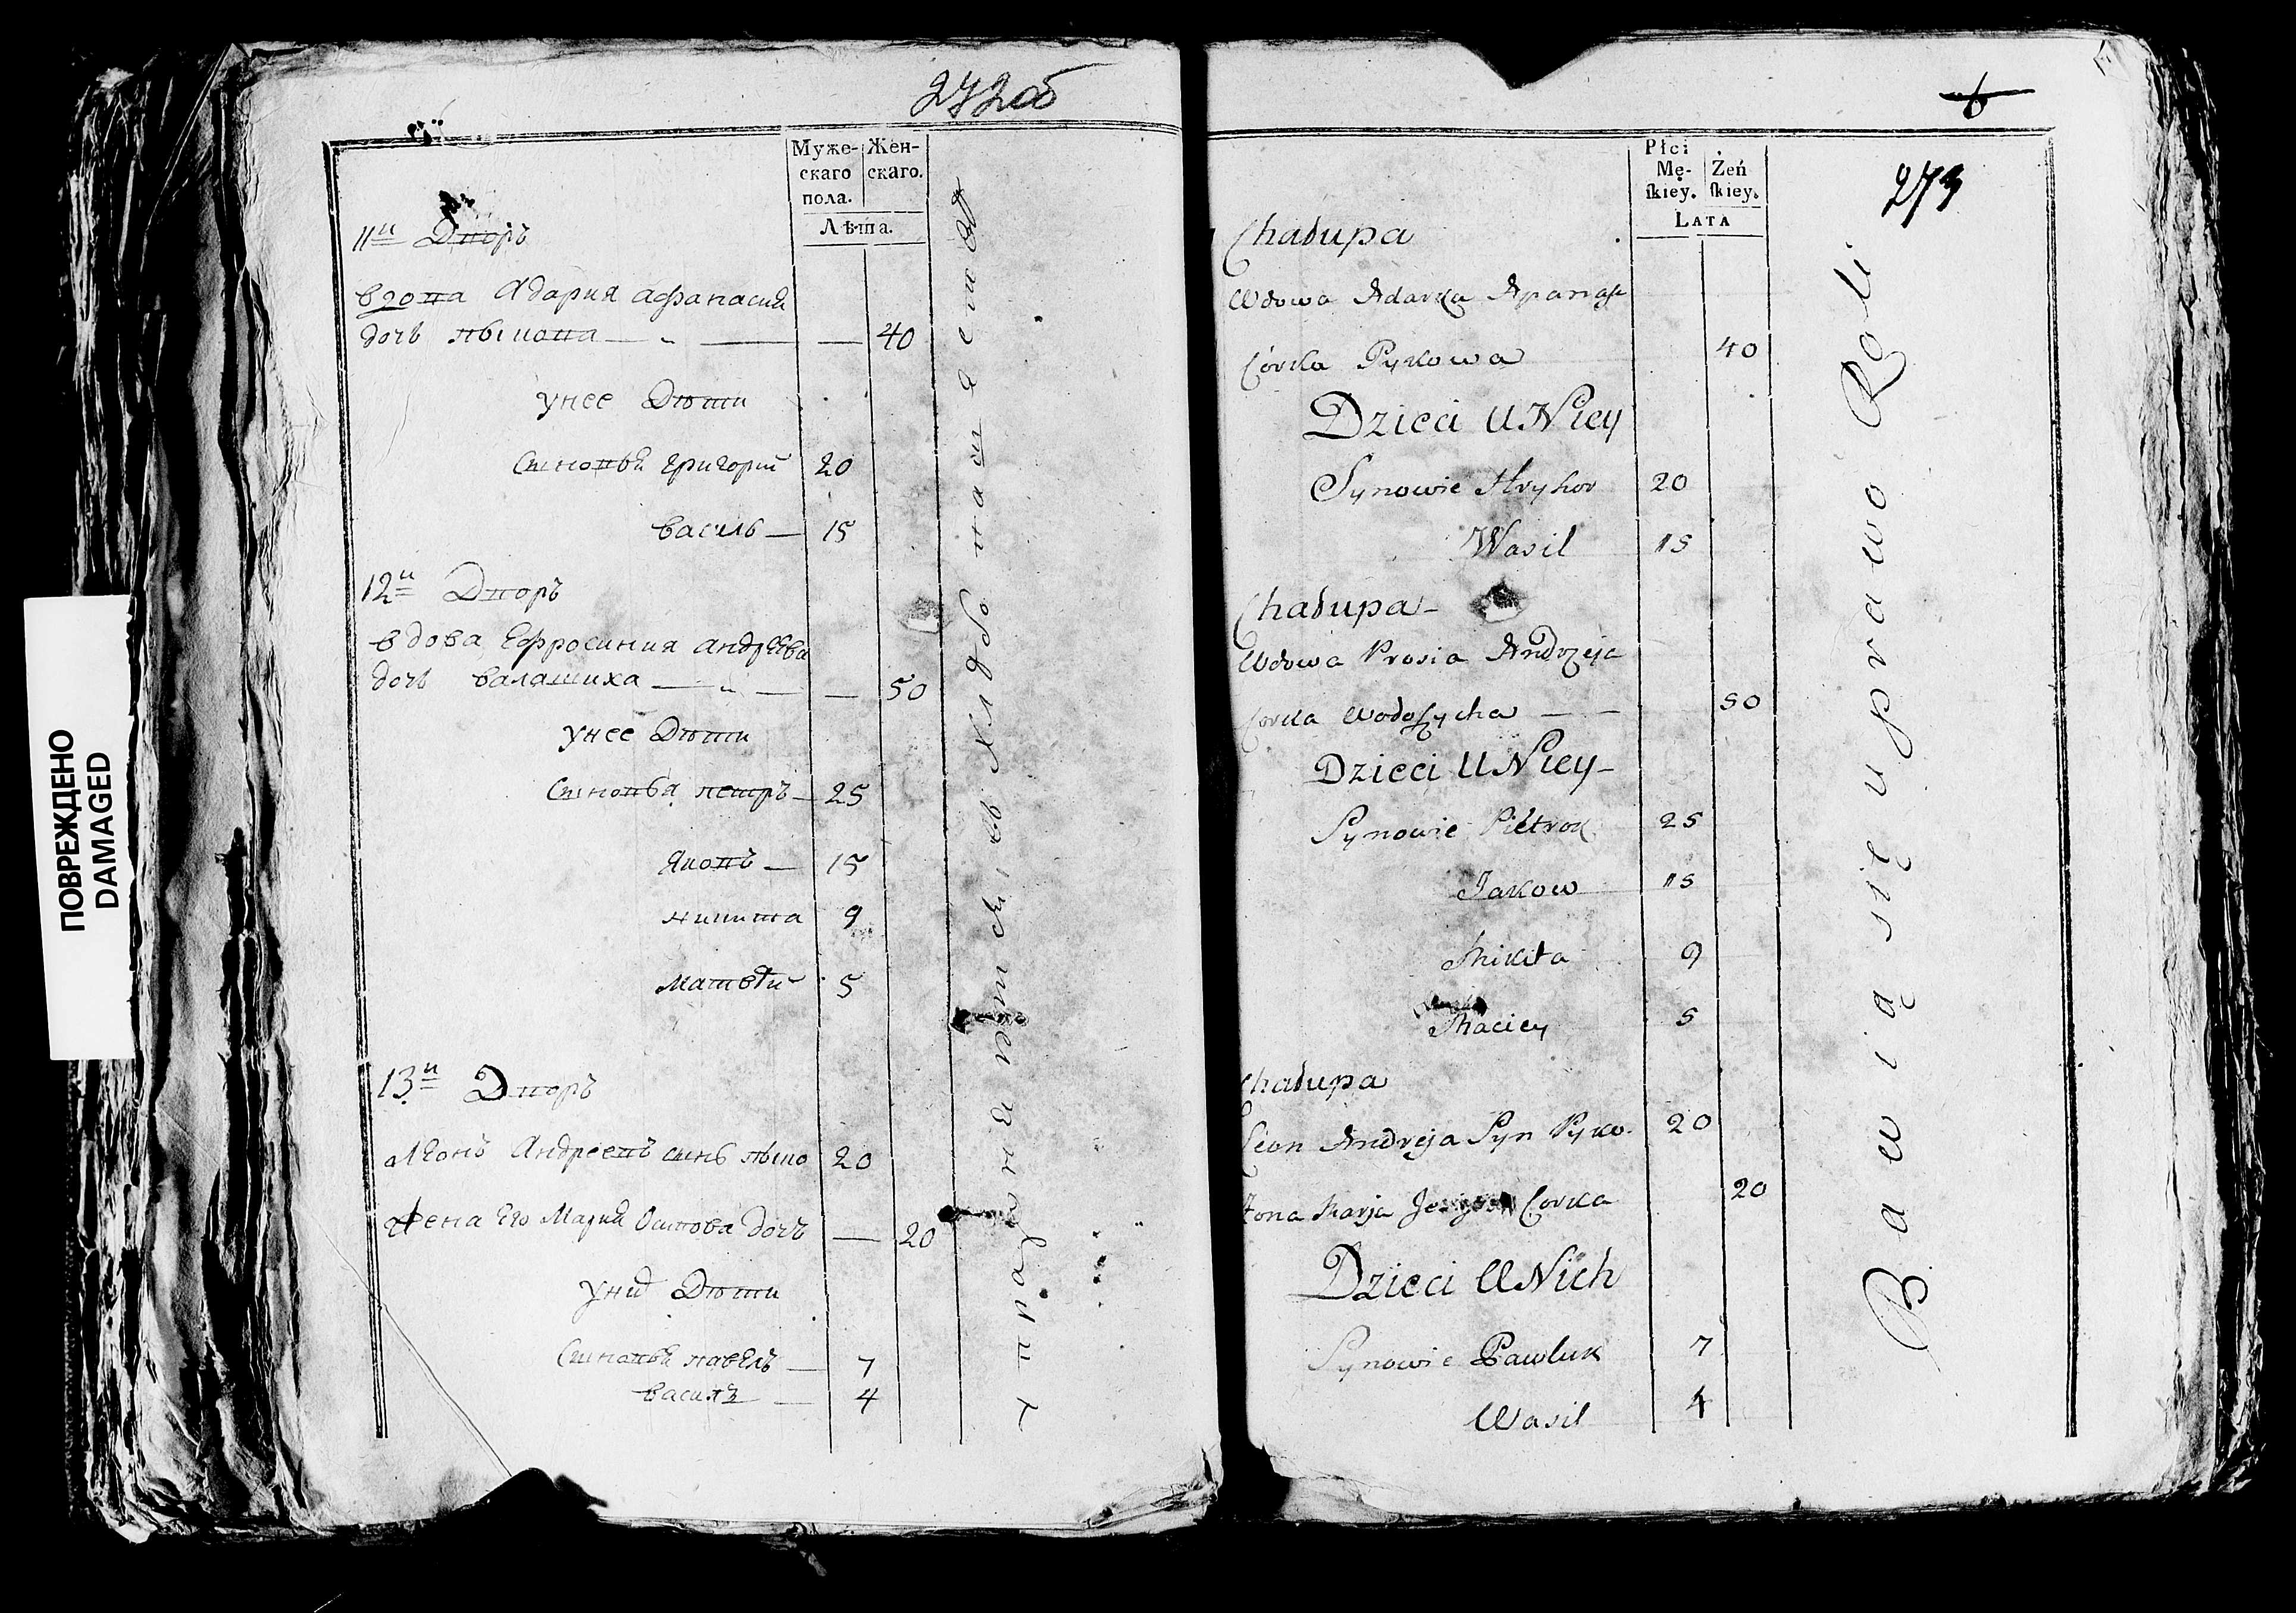 272об
Муже-
скаго
пола.
Жен-
скаго.
Лѣта.
11й Дворъ
вдова Адария афанасия
дочь пыкова — — 40
унее Дѣти
Сыновья григорий 20
василь — 15
12й Дворъ
вдова Ефросиния андрѣева
дочь валашиха — — 50
унее Дѣти
Сыновья петръ — 25
Яковъ — 15
никита 9
Матвѣй 5
13й Дворъ
Леонъ Андреевъ сынъ пыко 20
жена Его Мария Осипова дочь — 20
Дѣти
Сыновья павелъ — 7
василь — 4
ПОВРЕЖДЕНО
DAMAGED
6
273
Płci
Mę-
skiey.
Żeń
skiey.
LATA
Chałupa
Wdowa Adarka Apanasa
Córka Pykowa 40
Dzieci U Niey
Synowie Hryhor 20
Wasil 15
Chałupa
Wdowa Prosia Andrzeja
Corka 50
Dzieci U Niey
Synowie Pietrok 25
Jakow 15
Mikita 9
Maciey 5
Chałupa
Leon Andreja Syn Pyko. 20
Żona Marja Corka 20
Dzieci U Nich
Synowie Pawluk 7
Wasil 4
Bawią się uprawo Roli